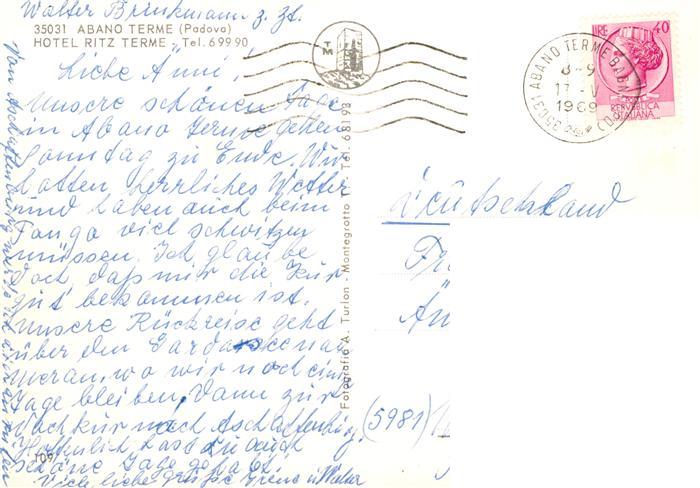 Walter Brinkmann z. Zt.
35031 ABANO TERME (Padova)
HOTEL RITZ TERME - Tel. 699 90
Liebe Änni,
unsere schönen Tage
in Abano Terme gehen
Sonntag zu Ende. Wir
hatten herrliches Wetter
und haben auch beim
Fango viel schwitzen
müssen. Ich glaube
doch, daß mir die Kur
gut bekommen ist.
Unsere Rückreise geht
über den Gardasee nach
Meran, wo wir noch einige
Tage bleiben. Dann zur
Nachkur nach Aschaffenburg.
Hoffentlich hast du auch
schöne Tage gehabt.
Viele liebe Grüße Irene u. Walter
Von Aschaffenburg werde ich dich anrufen
109/
Fotografia A. Turlon - Montegrotto T. - Tel. 68193
T M
LIRE 40
REPUBBLICA
ITALIANA
35031 ABANO TERME BAGNI
8-9
17-V
1969
Deutschland
Fr
Än
(5981)